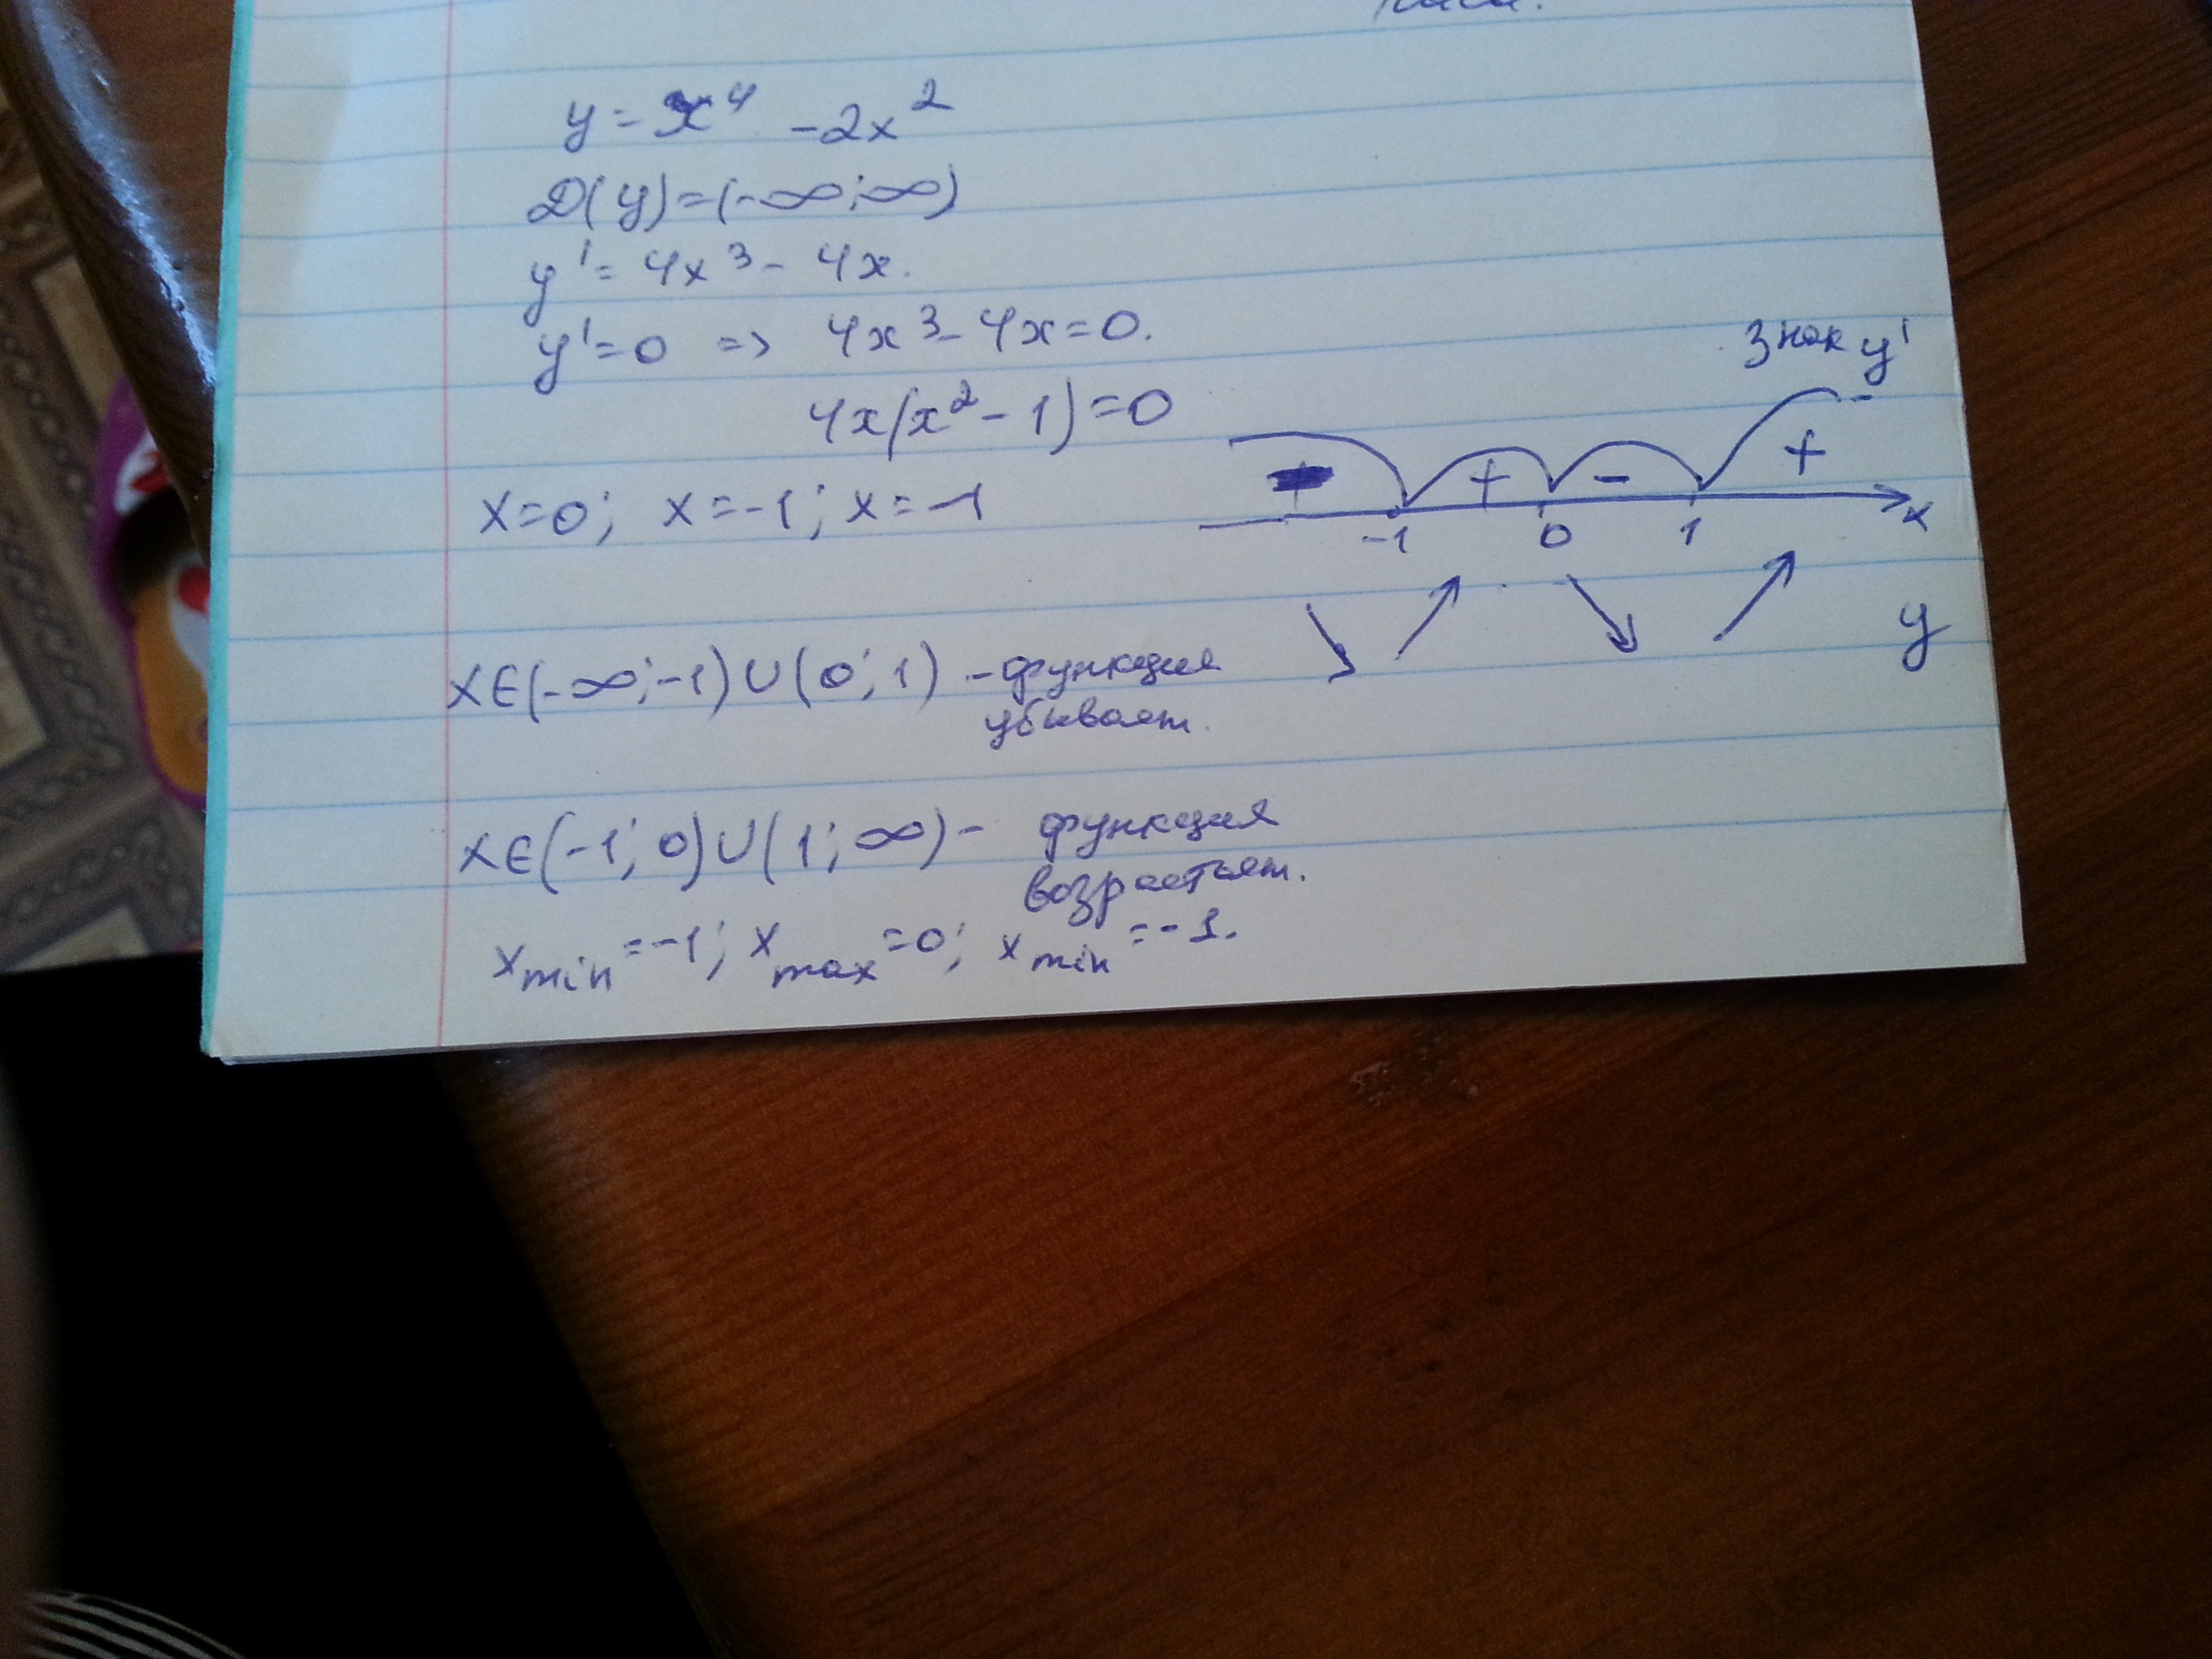 y = x⁴ - 2x²
D(y)=(-∞;∞)
y' = 4x³ - 4x.
y'=0 => 4x³ - 4x=0.
4x(x² - 1)=0
x=0; x=-1; x=-1
знак y'
+ - + -
-1 0 1 x
y
x∈(-∞;-1)∪(0;1) - функция
убывает.
x∈(-1;0)∪(1;∞) - функция
возрастает.
x min = -1; x max = 0; x min = -1.